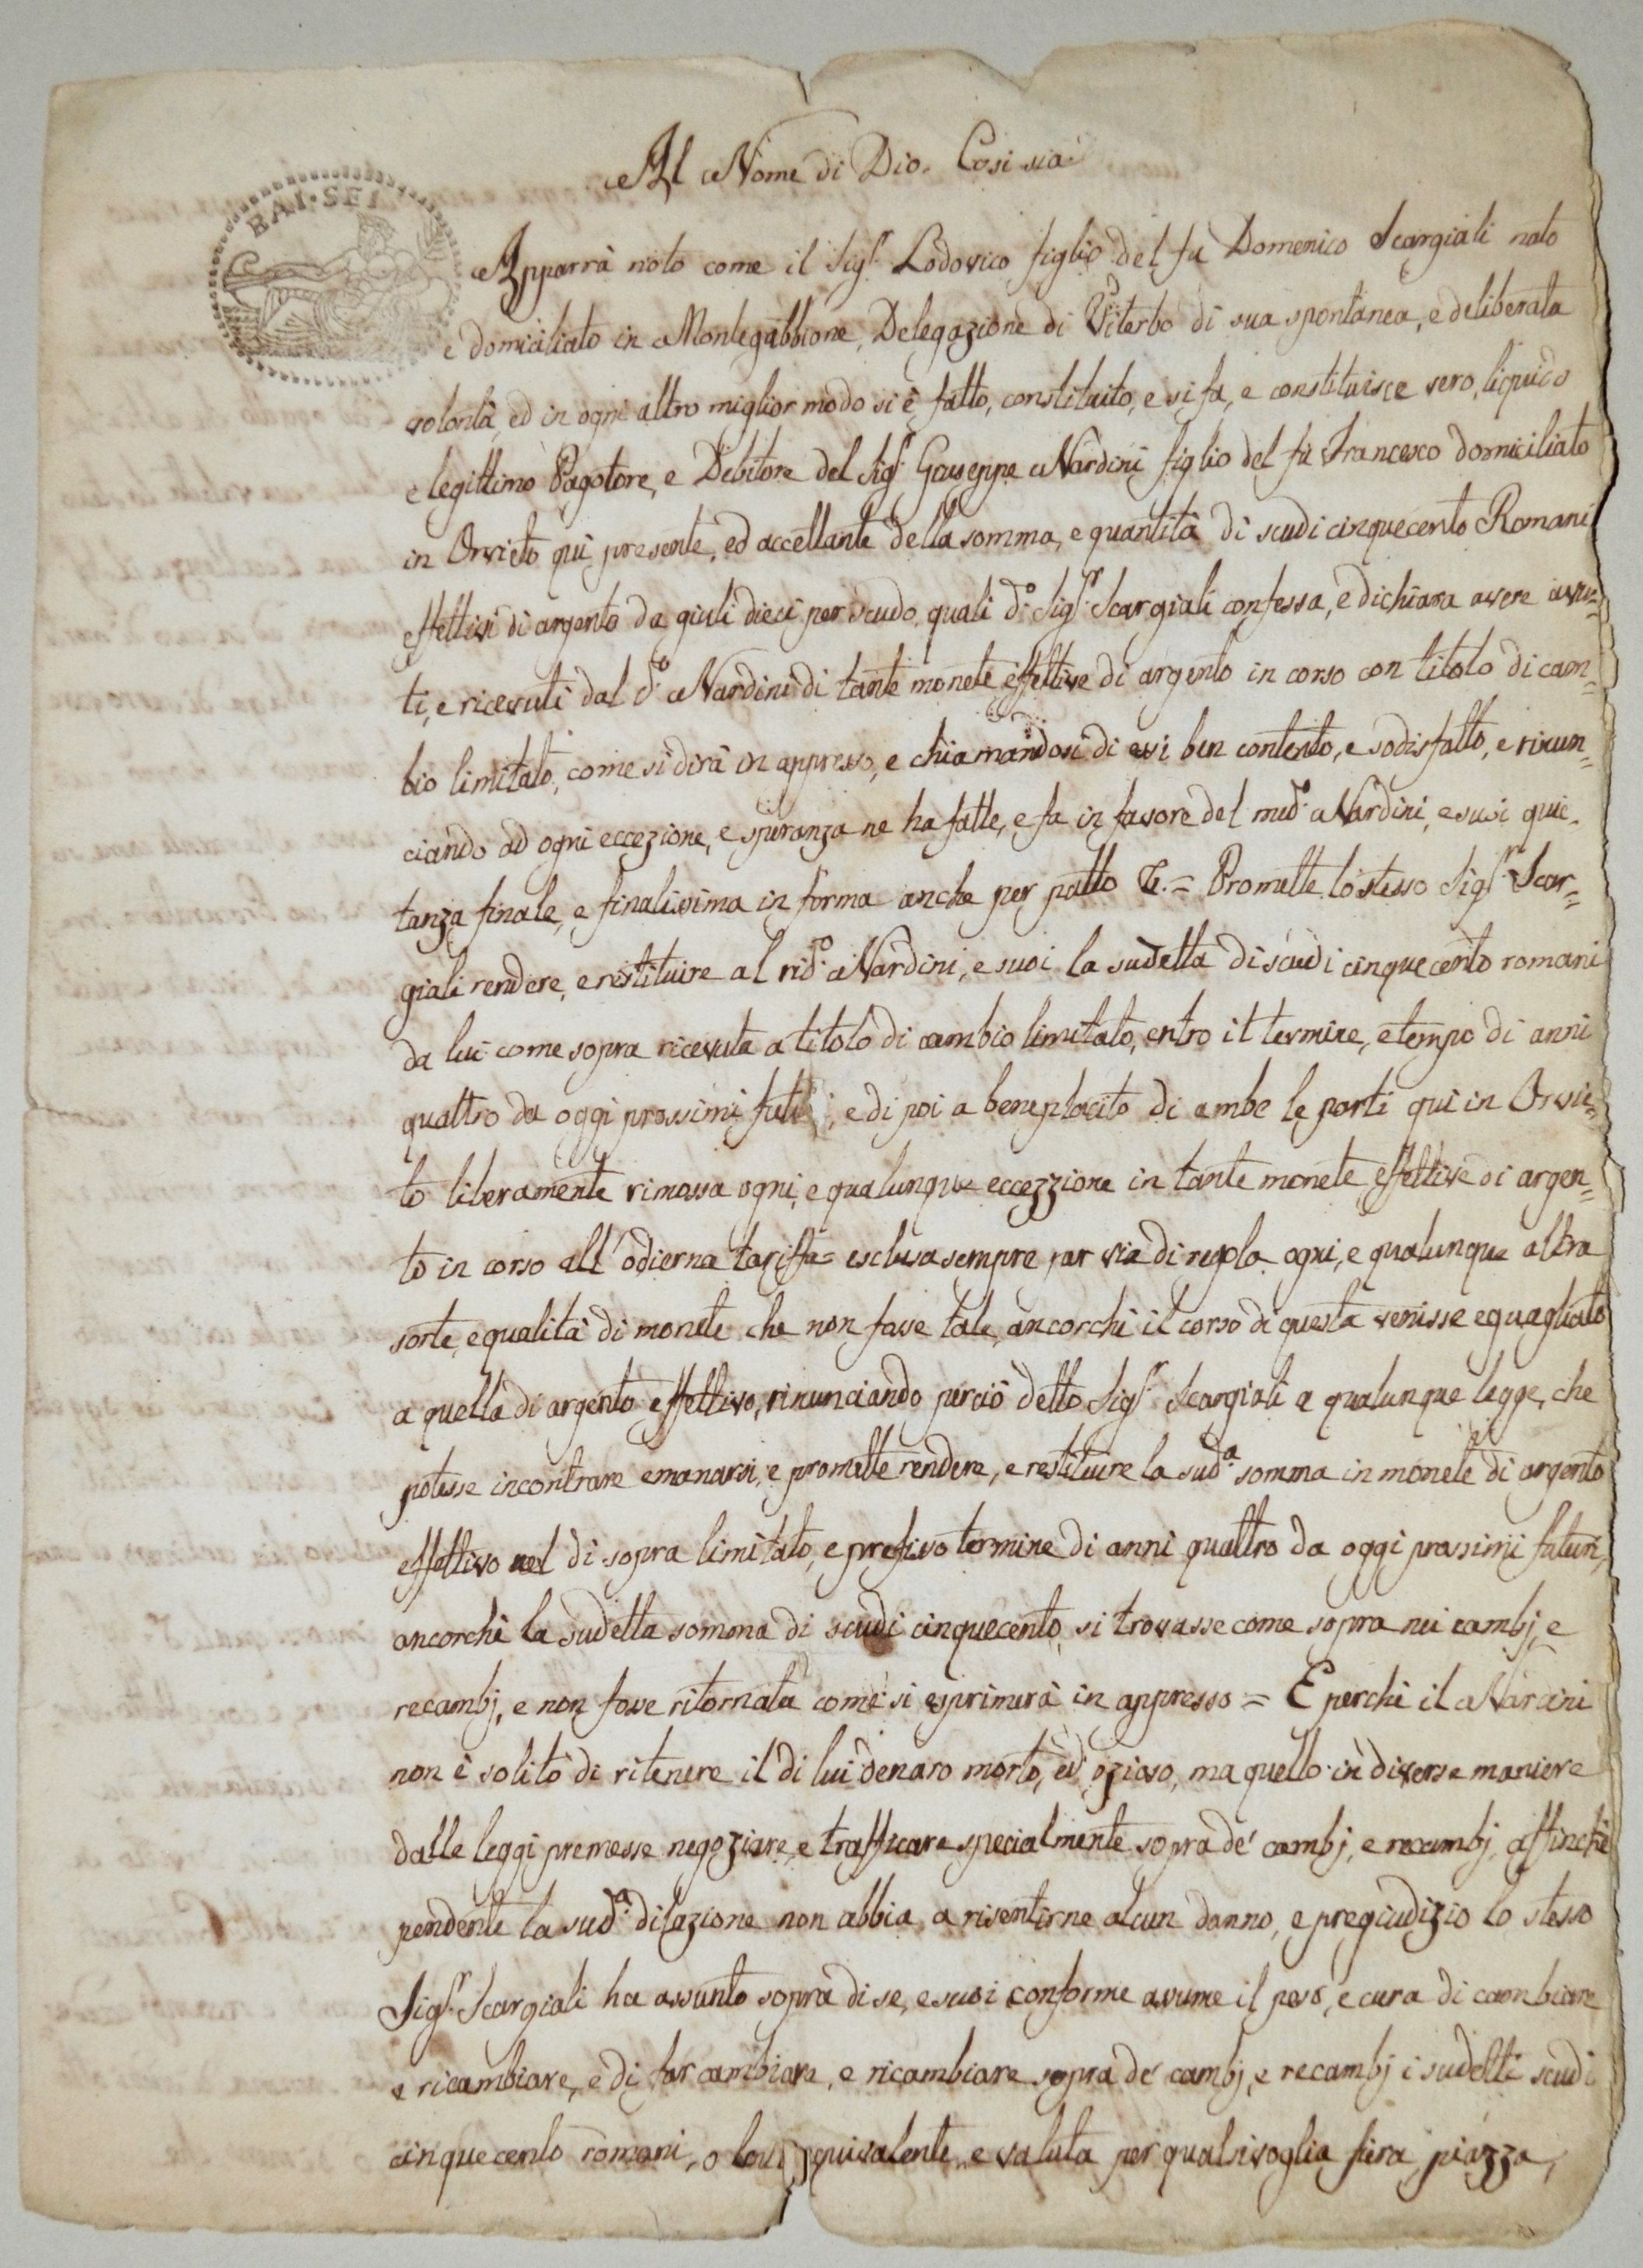 BAI·SEI
Al Nome di Dio. Cosi sia
Apparrà noto come il Sigr. Lodovico figlio del fù Domenico Scargiali nato
e domiciliato in Montegabbione, Delegazione di Viterbo di sua spontanea, e deliberata
volontà, ed in ogni altro miglior modo si è fatto, constituito, e si fa, e constituisce vero, liquido
e legittimo Pagatore, e Debitore del Sigr. Giuseppe Nardini figlio del fù Francesco domiciliato
in Orvieto quì presente, ed accettante della somma, e quantità di scudi cinquecento Romani
effettivi di argento da giuli dieci per scudo, quali do. Sigr. Scargiali confessa, e dichiara avere avu=
ti, e ricevuti dal do. Nardini di tante monete effettive di argento in corso con titolo di cam=
bio limitato, come si dirà in appresso, e chiamandosi di essi ben contento, e sodisfatto, e rinun=
ciando ad ogni eccezione, e speranza ne ha fatte, e fa in favore del medo. Nardini, e suoi quie=
tanza finale, e finalissima in forma anche per patto &. = Promette lo stesso Sigr. Scar=
giali rendere, e restituire al rido. Nardini, e suoi la sudetta di scudi cinquecento romani
da lui come sopra ricevuta a titolo di cambio limitato, entro il termine, e tempo di anni
quattro da oggi prossimi futuri, e di poi a beneplacito di ambe le parti qui in Orvie=
to liberamente rimossa ogni, e qualunque eccezzione in tante monete effettive di argen=
to in corso all'odierna tariffa = esclusa sempre per via di regola ogni, e qualunque altra
sorte, e qualità di monete che non fosse tale, ancorchè il corso di questa venisse eguagliato
a quella di argento effettivo, rinunciando perciò detto Sigr. Scargiali a qualunque legge, che
potesse incontrare emanarsi, e promette rendere, e restituire la suda. somma in monete di argento
effettivo nel di sopra limitato, e prefisso termine di anni quattro da oggi prossimi futuri,
ancorchè la sudetta somma di scudi cinquecento si trovasse come sopra nei cambj, e
recambj, e non fosse ritornata come si esprimerà in appresso = E perchè il Nardini
non è solito di ritenere il di lui denaro morto, ed ozioso, ma quello in diverse maniere
dalle leggi premesse negoziare, e trafficare specialmente sopra de' cambj, e recambj, affinchè
pendente la suda. dilazione non abbia a risentirne alcun danno, e pregiudizio lo stesso
Sigr. Scargiali ha assunto sopra di se, e suoi conforme assume il peso, e cura di cambiare
e ricambiare, e di far cambiare, e ricambiare sopra de' cambj, e recambj i sudetti scudi
cinquecento romani, o loro equivalente, e valuta per qualsivoglia fiera, piazza,